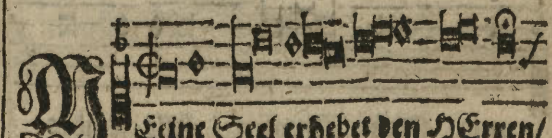 MEine Seel erhebet den HErren/